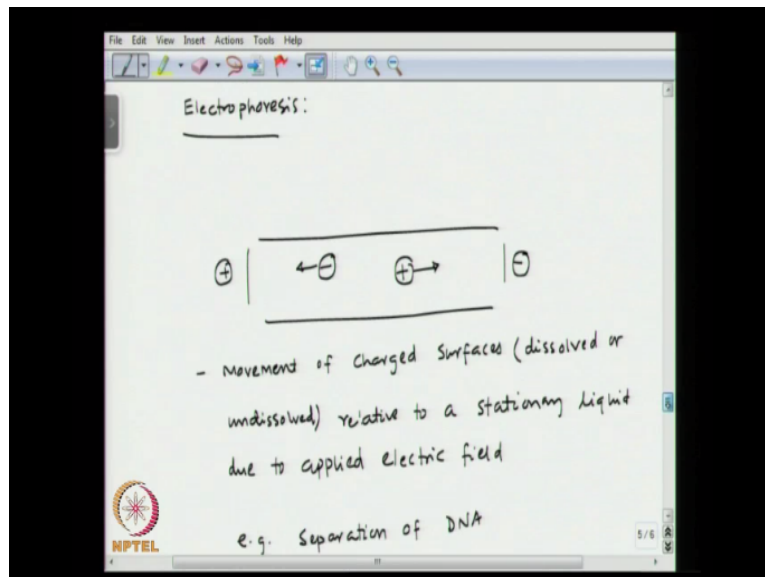 File Edit View Insert Actions Tools Help
Electrophoresis:
+ - + -
- Movement of charged surfaces (dissolved or
undissolved) relative to a stationary liquid
due to applied electric field
e.g. Separation of DNA
5/6
NPTEL